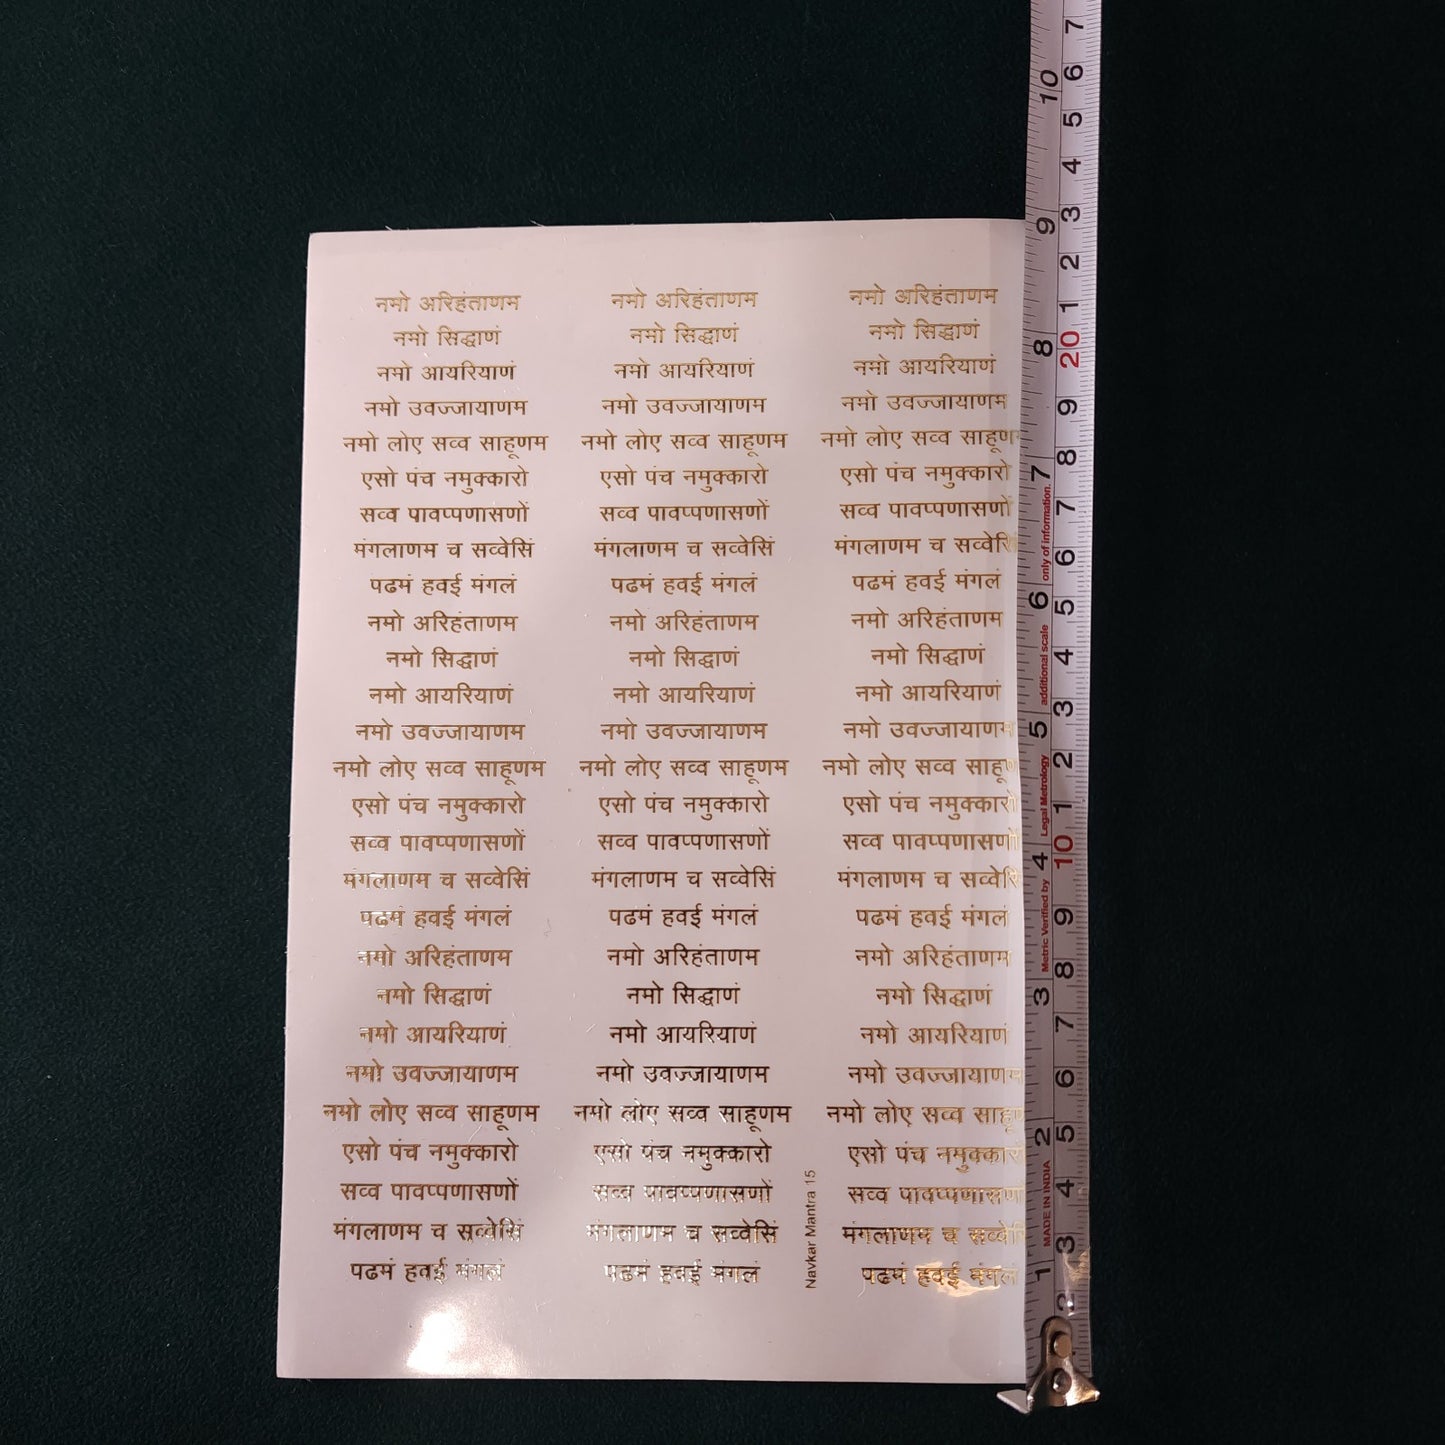 नमो अरिहंताणम नमो अरिहंताणम नमो अरिहंताणम
नमो सिद्धाणं नमो सिद्धाणं नमो सिद्धाणं
नमो आयरियाणं नमो आयरियाणं नमो आयरियाणं
नमो उवज्जायाणम नमो उवज्जायाणम नमो उवज्जायाणम
नमो लोए सव्व साहूणम नमो लोए सव्व साहूणम नमो लोए सव्व साहूणम
एसो पंच नमुक्कारो एसो पंच नमुक्कारो एसो पंच नमुक्कारो
सव्व पावप्पणासणों सव्व पावप्पणासणों सव्व पावप्पणासणों
मंगलाणम च सव्वेसिं मंगलाणम च सव्वेसिं मंगलाणम च सव्वेसिं
पढमं हवई मंगलं पढमं हवई मंगलं पढमं हवई मंगलं
नमो अरिहंताणम नमो अरिहंताणम नमो अरिहंताणम
नमो सिद्धाणं नमो सिद्धाणं नमो सिद्धाणं
नमो आयरियाणं नमो आयरियाणं नमो आयरियाणं
नमो उवज्जायाणम नमो उवज्जायाणम नमो उवज्जायाणम
नमो लोए सव्व साहूणम नमो लोए सव्व साहूणम नमो लोए सव्व
एसो पंच नमुक्कारो एसो पंच नमुक्कारो एसो पंच नमुक्कारो
सव्व पावप्पणासणों सव्व पावप्पणासणों सव्व पावप्पणासणों
मंगलाणम च सव्वेसिं मंगलाणम च सव्वेसिं मंगलाणम च सव्वेसिं
पढमं हवई मंगलं पढमं हवई मंगलं पढमं हवई मंगलं
नमो अरिहंताणम नमो अरिहंताणम नमो अरिहंताणम
नमो सिद्धाणं नमो सिद्धाणं नमो सिद्धाणं
नमो आयरियाणं नमो आयरियाणं नमो आयरियाणं
नमो उवज्जायाणम नमो उवज्जायाणम नमो उवज्जायाणम
नमो लोए सव्व साहूणम नमो लोए सव्व साहूणम नमो लोए सव्व
एसो पंच नमुक्कारो एसो पंच नमुक्कारो एसो पंच नमुक्कारो
सव्व पावप्पणासणों सव्व पावप्पणासणों सव्व पावप्पणासणों
मंगलाणम च सव्वेसिं मंगलाणम च सव्वेसिं मंगलाणम च
पढमं हवई मंगलं पढमं हवई मंगलं पढमं हवई मंगलं
Navkar Mantra 15
MADE IN INDIA
Metric Verified by Legal Metrology
additional scale only of information.
1 2 3 4 5 6 7 8 9 10
2 3 4 5 6 7 8 9 10 1 2 3 4 5 6 7 8 9 20 1 2 3 4 5 6 7